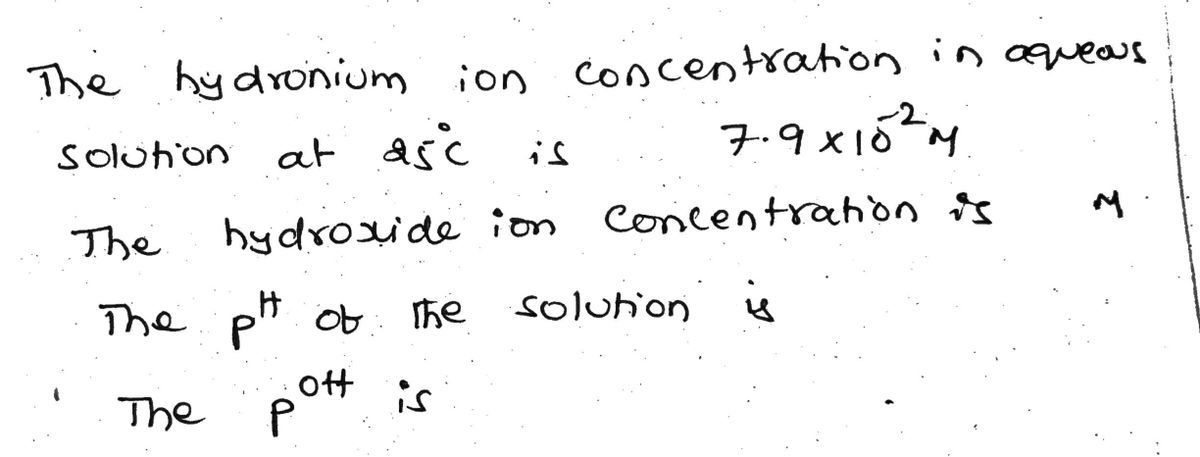 The hydronium ion concentration in aqueous
solution at 25°C is 7.9 x 10⁻² M.
The hydroxide ion concentration is M
The pH of the solution is
The pOH is